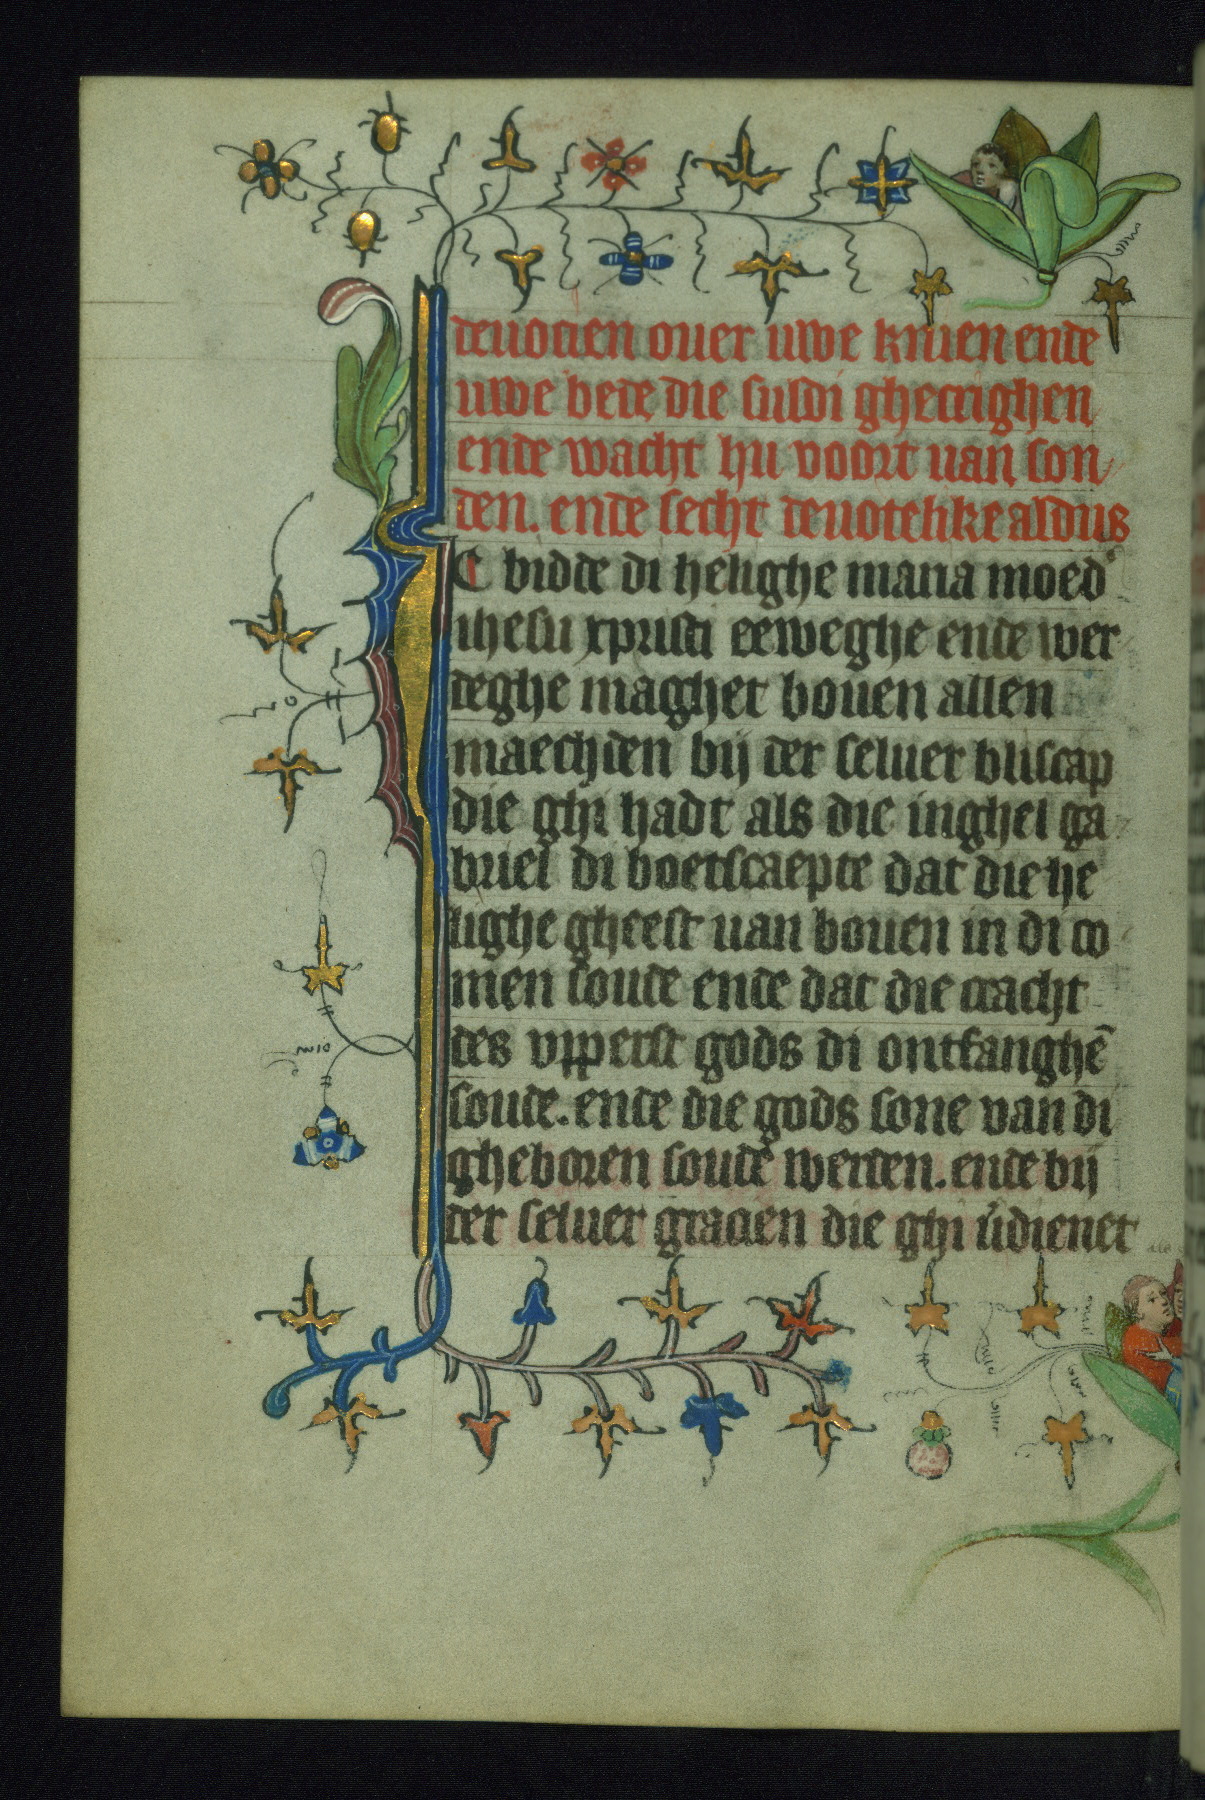 deuocien ouer uwe knien ende
uwe bede die suldi ghecrighen
ende wacht hu voort uan son
den. ende secht deuotelike aldus
IC bidde di helighe maria moed'
ihesu xpristi eeweghe ende wer
deghe maghet bouen allen
maechden bij der seluer bliscap
die ghi hadt als die inghel ga
briel di boetscaepte dat die he
lighe gheest uan bouen in di co
men soude ende dat die cracht
des vpperst gods di ontfanghē
soude. ende die gods sone van di
gheboren soude werden. ende bij
der seluer gracien die ghi u'dienet